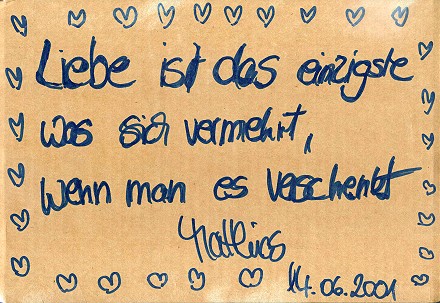 Liebe ist das einzigste
was sich vermehrt,
wenn man es verschenkt
14.06.2001